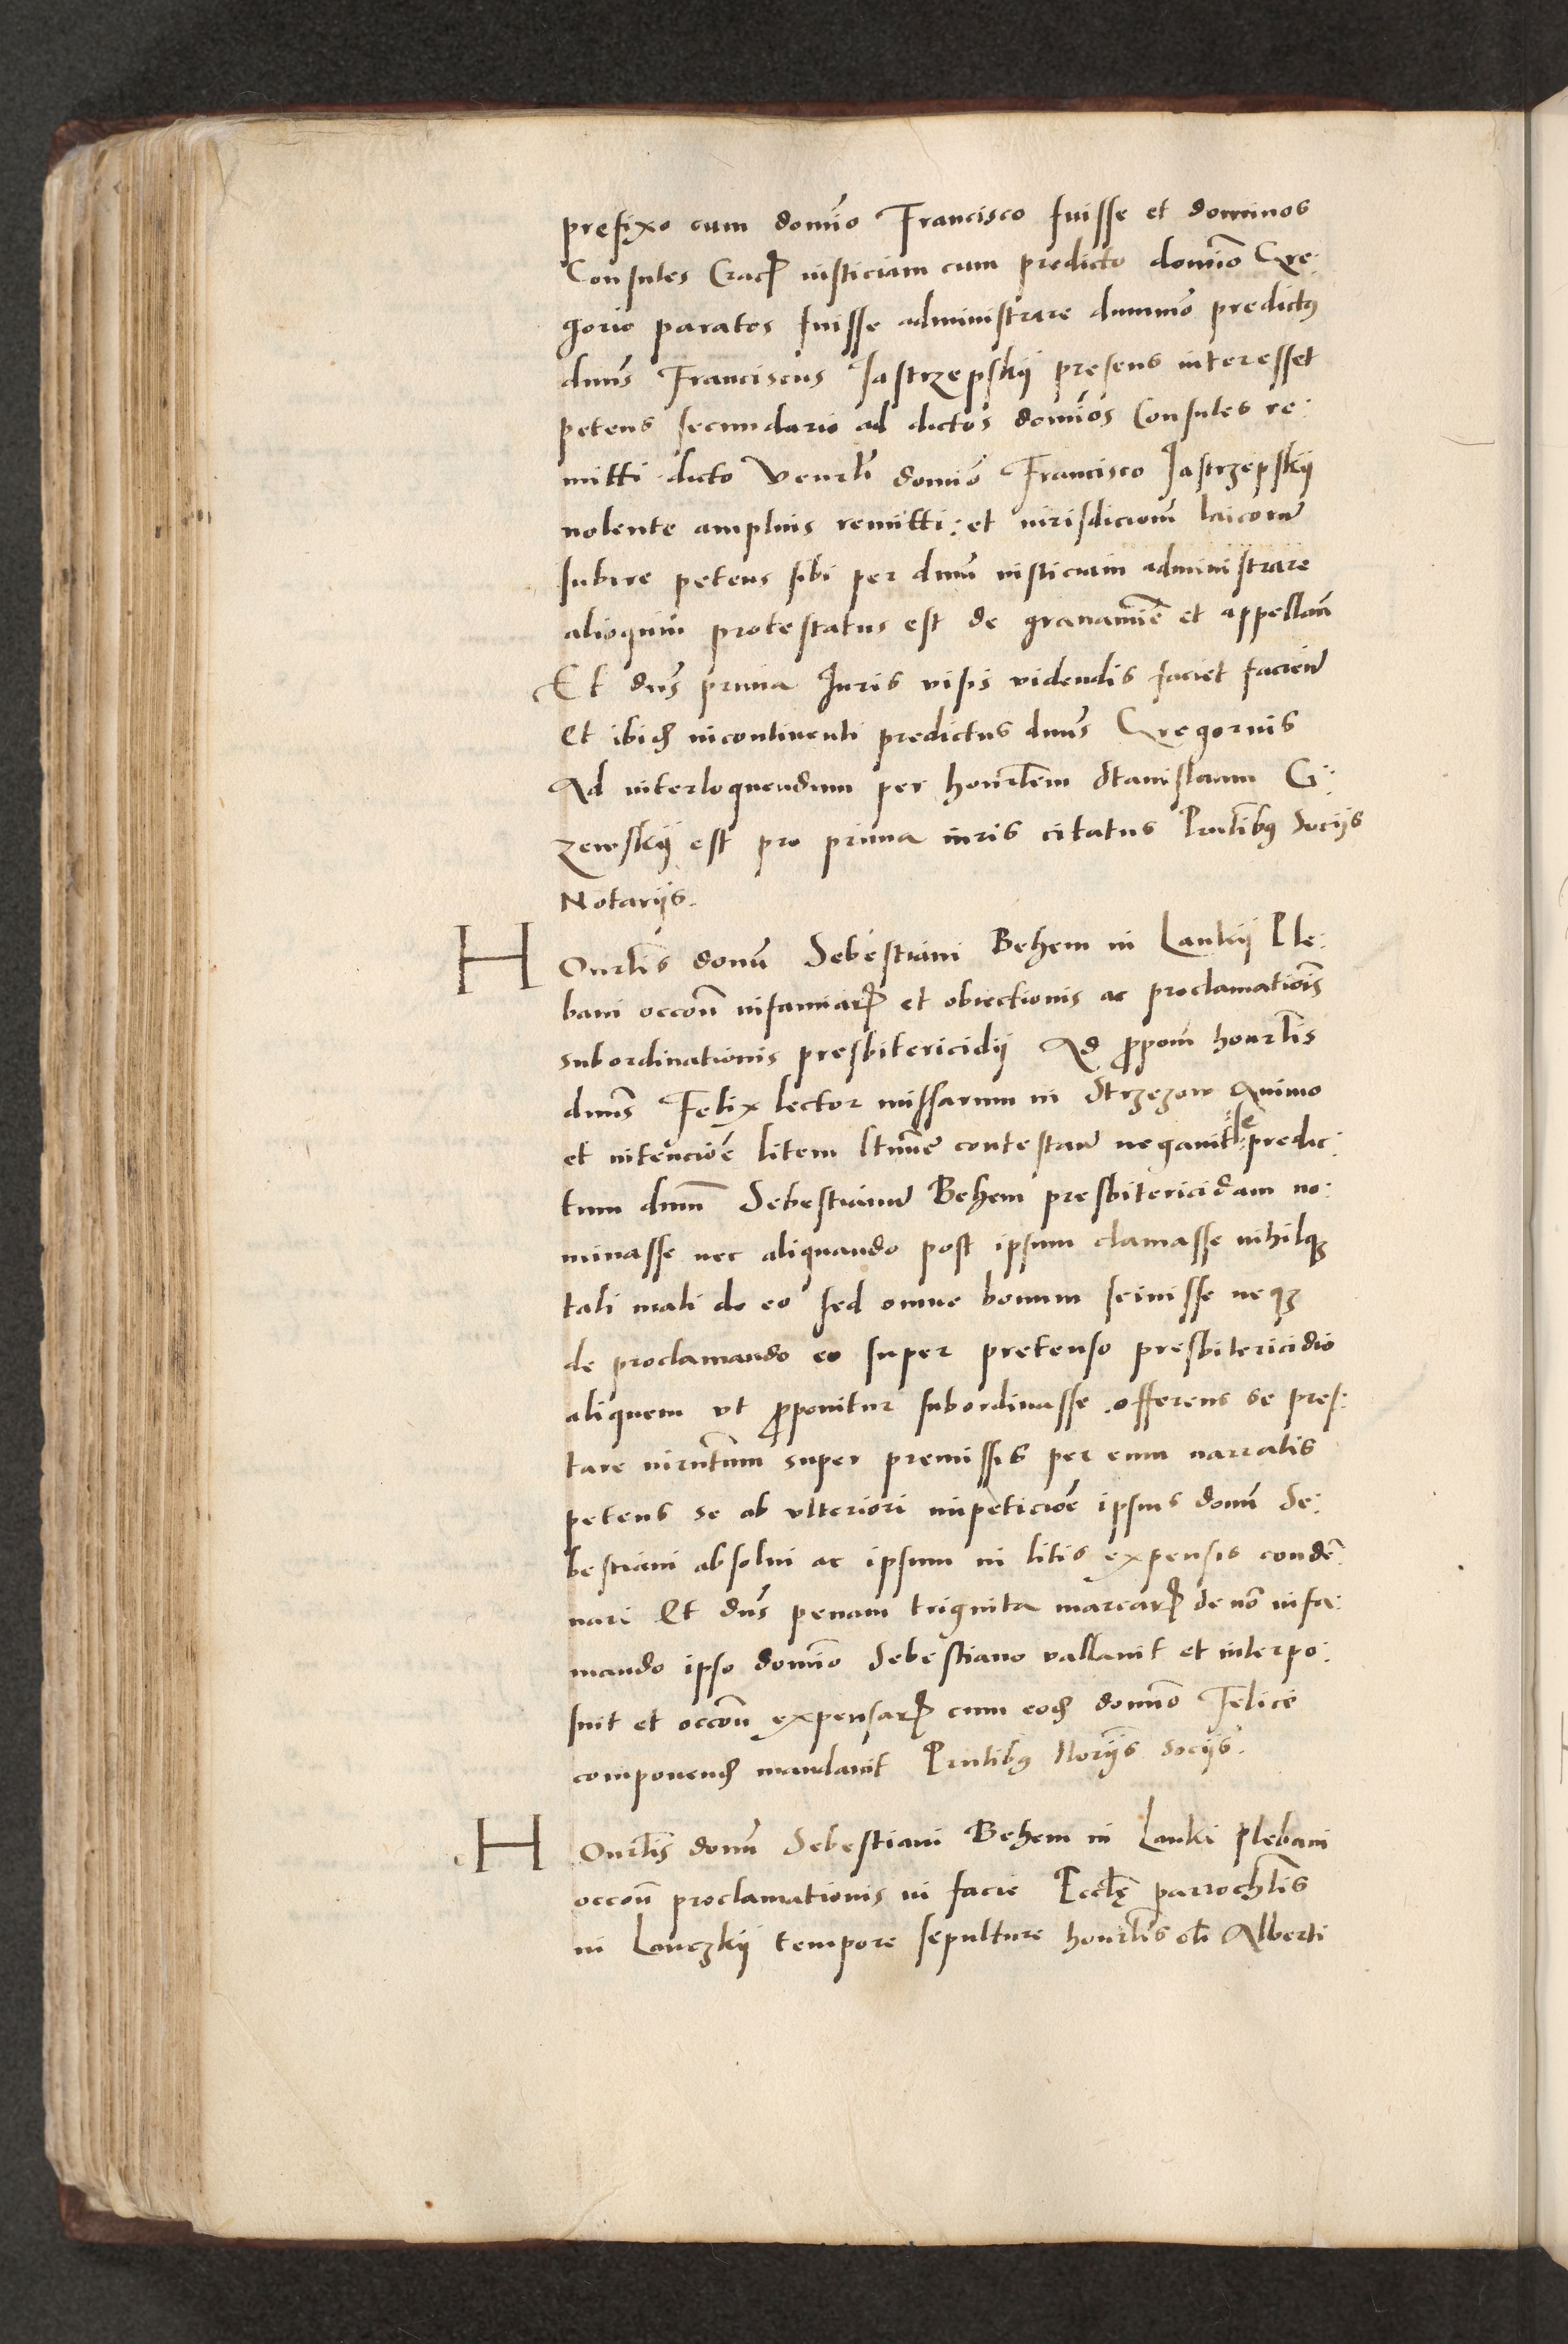 prefixo cum domīo Francisco fuisse et dominos
Consules Crac̄ iusticiam cum predicto domīo Gre:
gorio paratos fuisse administrare dummō predictꝯ
dnūs Franciscus Jastrzepskij presens interesset
petens secundario ad dictos domīos Consules re:
mitti dicto Venrli domīo Francisco Jastrzepskij
nolente amplius remitti: et iurisdiciom̄ laicorum̄
subire petens sibi per dnum̄ iusticiam administrare
alioquin protestatus est de grauamīe et appellan̄
Et dn̄s prima Juris visis videndis faciet facien̄
Et ibid̄ incontinenti predictus dnūs Gregorius
Ad interloquendum per honrlem Stanislaum G:
zewskij est pro prima iuris citatus Pntibꝯ Socijs
Notarijs.
HOnrlis domī Sebestiani Behem in Lankij Ple:
bani occoīn infamiar̄ et obiectionis ac proclamatiois̄
subordinationis presbitericidij Ad ꝓpom̄ honrlis
dnūs Felix lector missarum in Strzezow Animo
et intencioē litem ltimē contestan̄ negauit se predic:
tum dnum̄ Sebestianum̄ Behem presbitericidam no:
minasse nec aliquando post ipsum clamasse nihilqꝫ
tali mali de eo sed omne bonum sciuisse neqꝫ
de proclamando eo super pretenso presbitericidio
aliquem vt ꝓponitur subordinasse offerens se pres:
tare iurntum super premissis per eum narratis
petens se ab vlteriori impeticioē ipsius domī Se:
bestiani absolui ac ipsum in litis expensis condē:
nari Et dn̄s penam triginta marcar̄ de nō infa:
mando ipso domīo Sebestiano vallauit et interpo:
suit et occoīn expensar̄ cum eod̄ domīo Felice
componend̄ mandauit Pntibꝯ Norijs Socijs.
HOnrlis domī Sebestiani Behem in Lanki plebani
occoīn proclamationis in facie Eccłę parrochlis
in Lanczkij tempore sepulture honrlis oł̄i Alberti